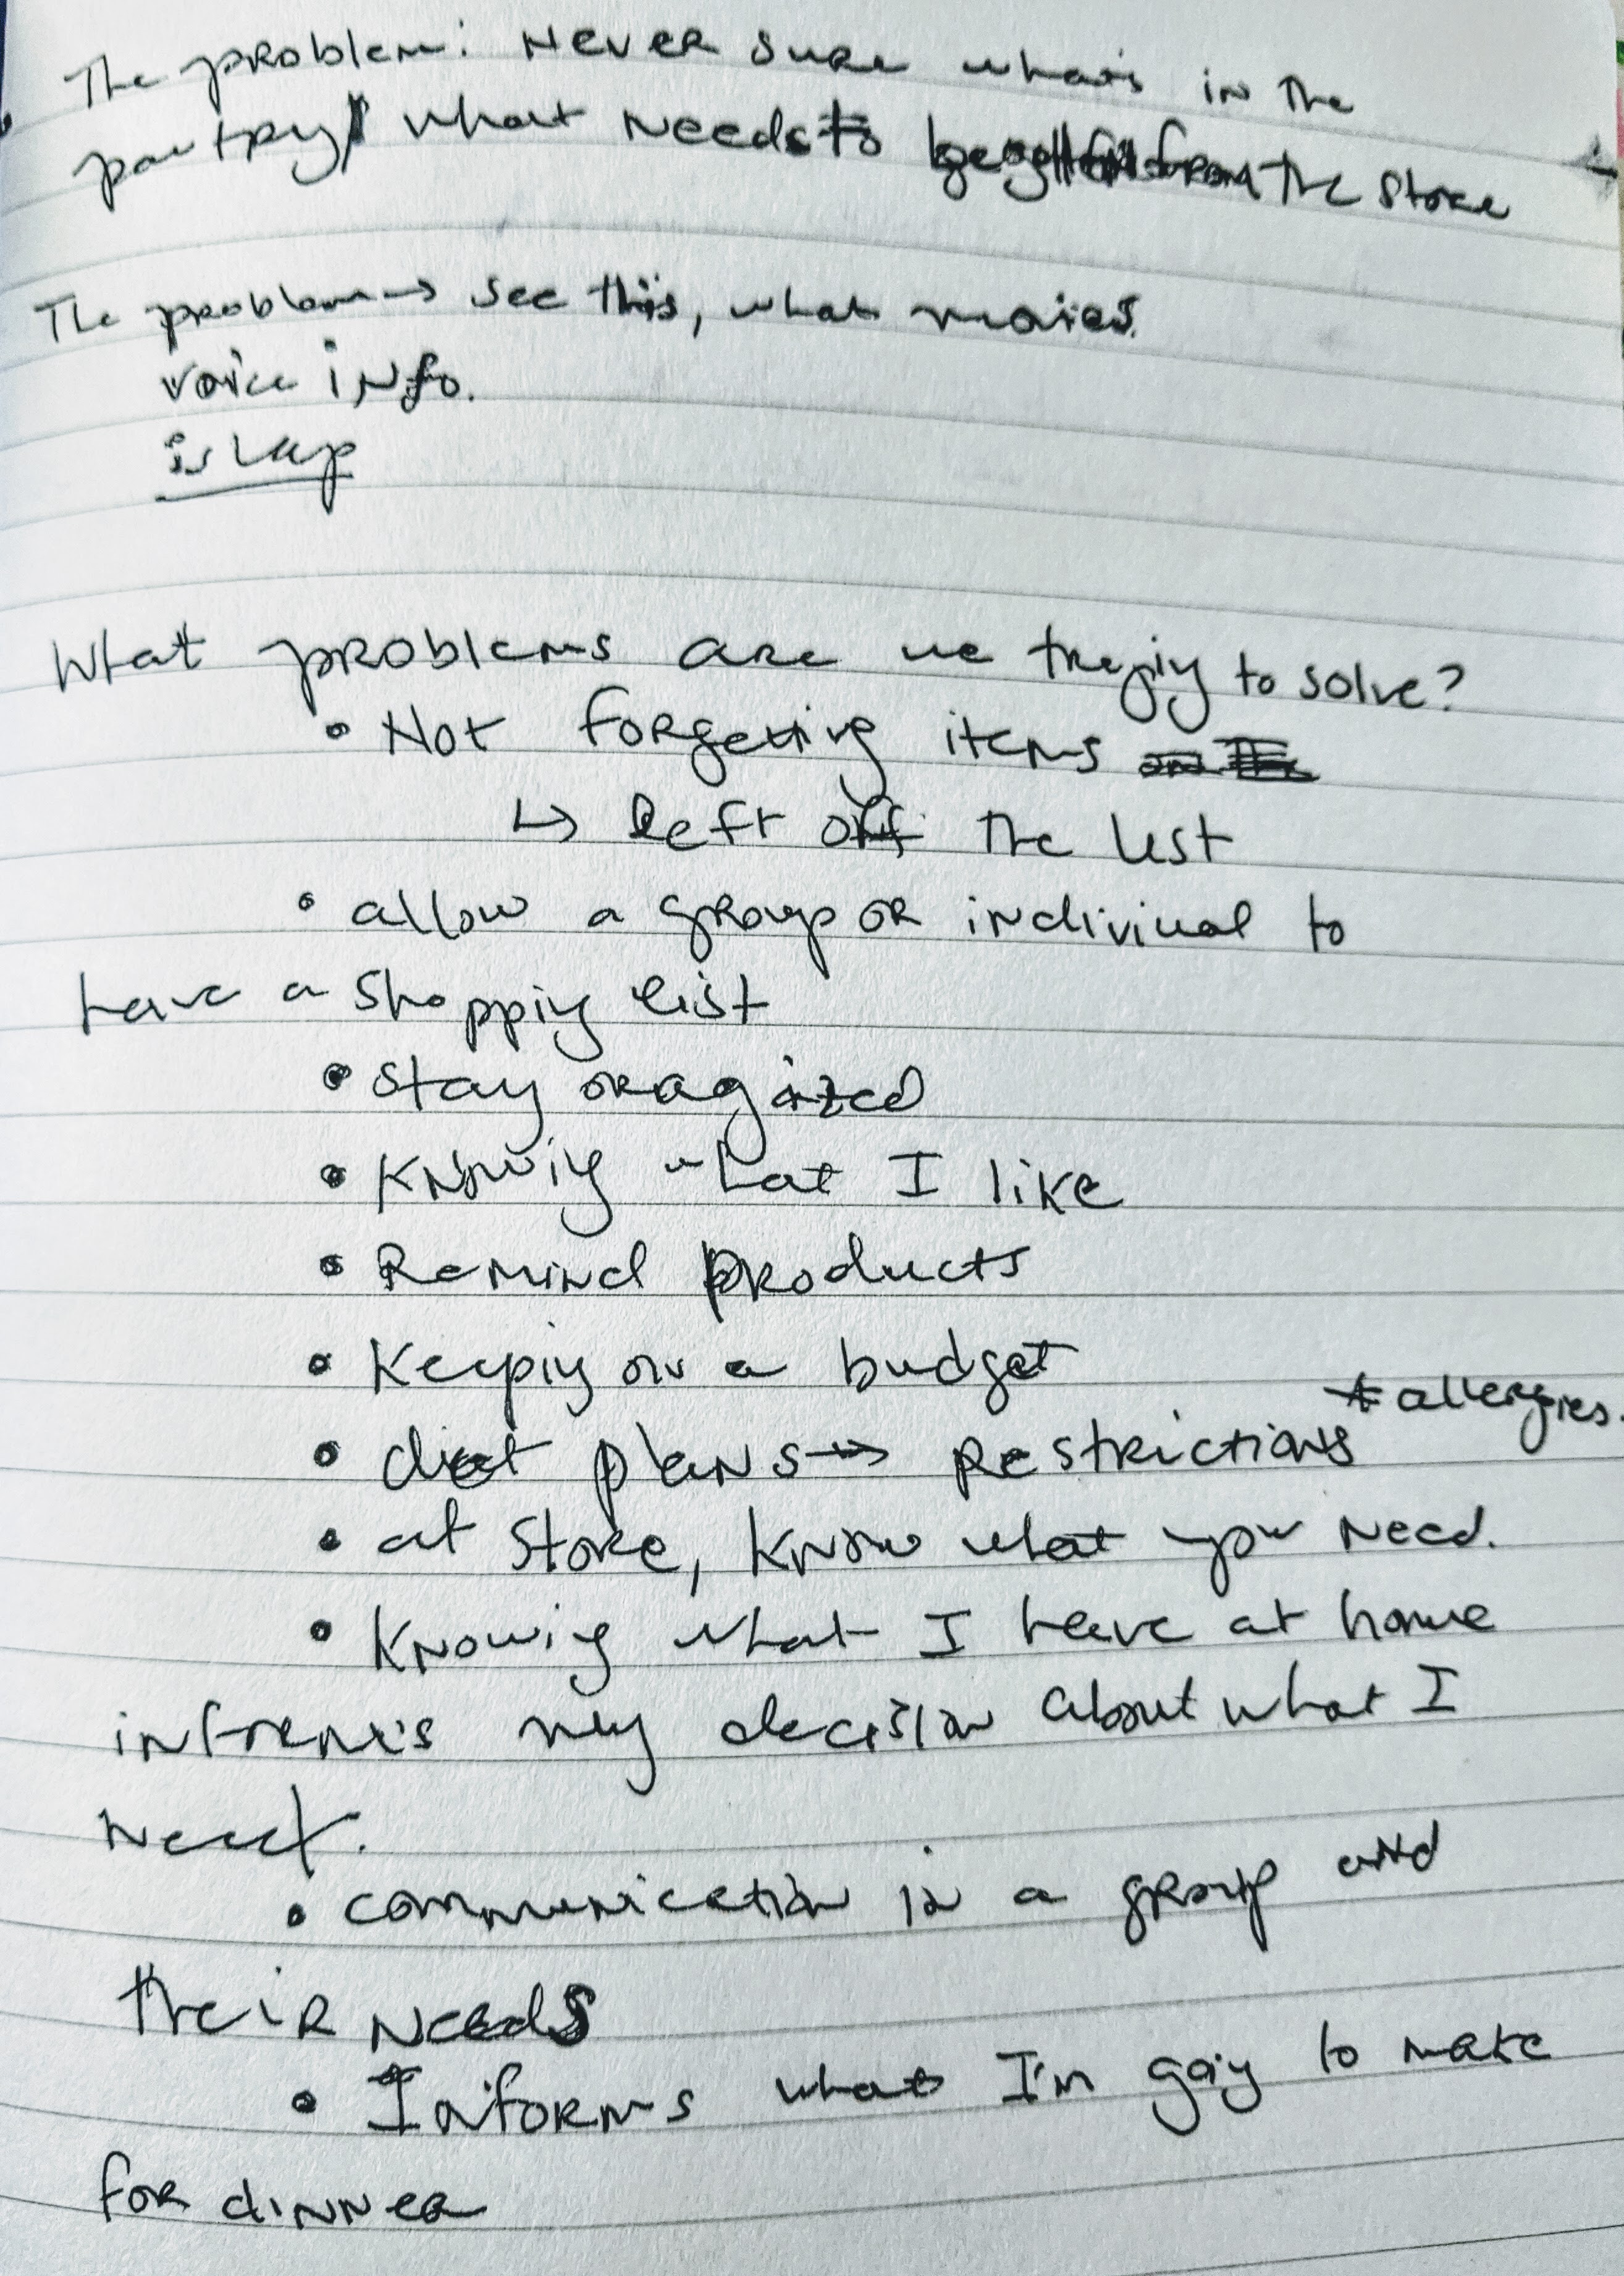 The problem: Never sure what's in the
pantry / what needs to be from the store
The problem → see this, what movies.
voice info.
is
What problems are we trying to solve?
• Not forgetting items
↳ left off the list
• allow a group or indiviual to
have a shopping list
• stay oragized
• Knowing what I like
• Remind products
• Keeping on a budget
* allergies.
• diet plans → restrictions
• at store, know what you need.
• Knowing what I have at home
informs my decision about what I
need.
• communication in a group and
their needs
• Informs what I'm going to make
for dinner